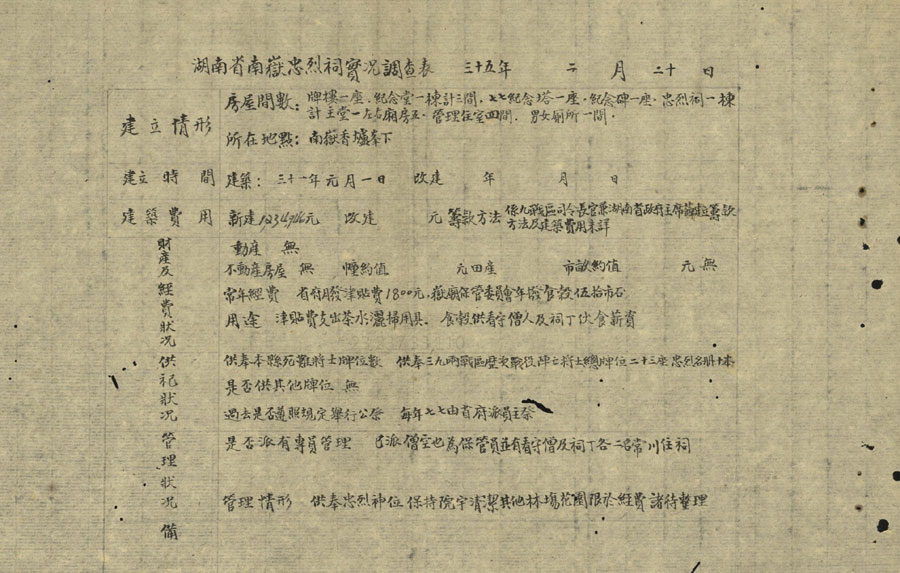 湖南省南嶽忠烈祠實况調查表 三十五年 二月二十日
建立情形
房屋間數：牌樓一座．紀念堂一棟計三間．七七紀念塔一座．紀念碑一座．忠烈祠一棟
計主堂一左右廂房五．管理住室四間．男女廁所一間．
所在地點：南嶽香爐峯下
建立時間 建築：三十一年元月一日 改建 年 月 日
建築費用 新建1234946元 改建 元 籌款方法 係九戰區司令長官兼湖南省政府主席薛 籌款
方法及建築費用未詳
財產及經費狀况
動產 無
不動產房屋 無 幢約值 元田產 市畝約值 元 無
常年經費 省府月發津貼費1800元．嶽廟保管委員會年撥食穀伍拾市石
用途 津貼費支出茶水灑掃用具．食穀供看守僧人及祠丁伙食薪資
供祀狀况
供奉本縣死難將士牌位數 供奉三九兩戰區歷次戰役陣亡將士總牌位二十三座忠烈名册十本
是否供其他牌位 無
過去是否遵照規定舉行公祭 每年七七由省府派員主祭
管理狀况
是否派有專員管理 已派僧空也為保管員並有看守僧及祠丁各二名常川住祠
管理情形 供奉忠烈神位保持院宇清潔其他林場花園限於經費諸待整理
備